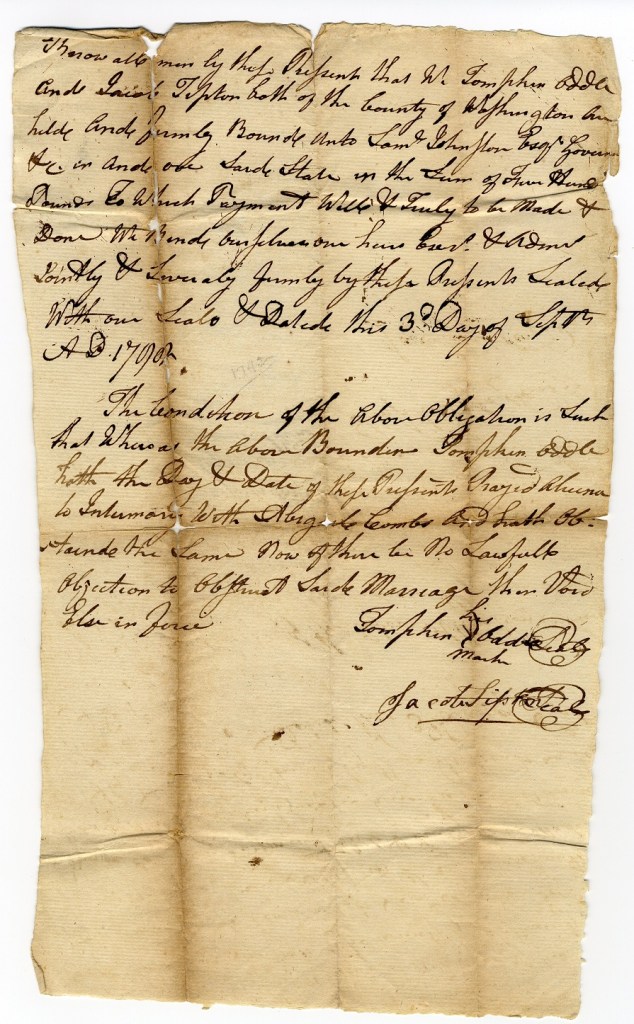 Know all men by these Presents that We Tomphen Oddle
Ande Jacob Tipton both of the County of Washington are
hilde Ande firmly Bounde unto Saml Johnston Esqr Govern
&c in Ande over Saide State in the Sum of Five Hund
Pounds To Which Payment Well & Truly to be Made &
Done We Binde ourselves our heirs Exers & Admrs
Jointly & Severaly firmly by these Presents Sealede
With our Seals & Datede this 3d Day of Septbr
A D 1790
The Condition of the Above Obligation is Such
that Whereas the Above Bounden Tomphen Oddle
hath the Day & Date of these Presents Prayed
to Intermary With Abigale Combs And hath Ob-
tainde the Same Now if there be No Lawfull
Objection to Obstruct Saide Marriage then Void
Else in force
Tomphen his Oddle Seal
mark
Jacob Tipton Seal